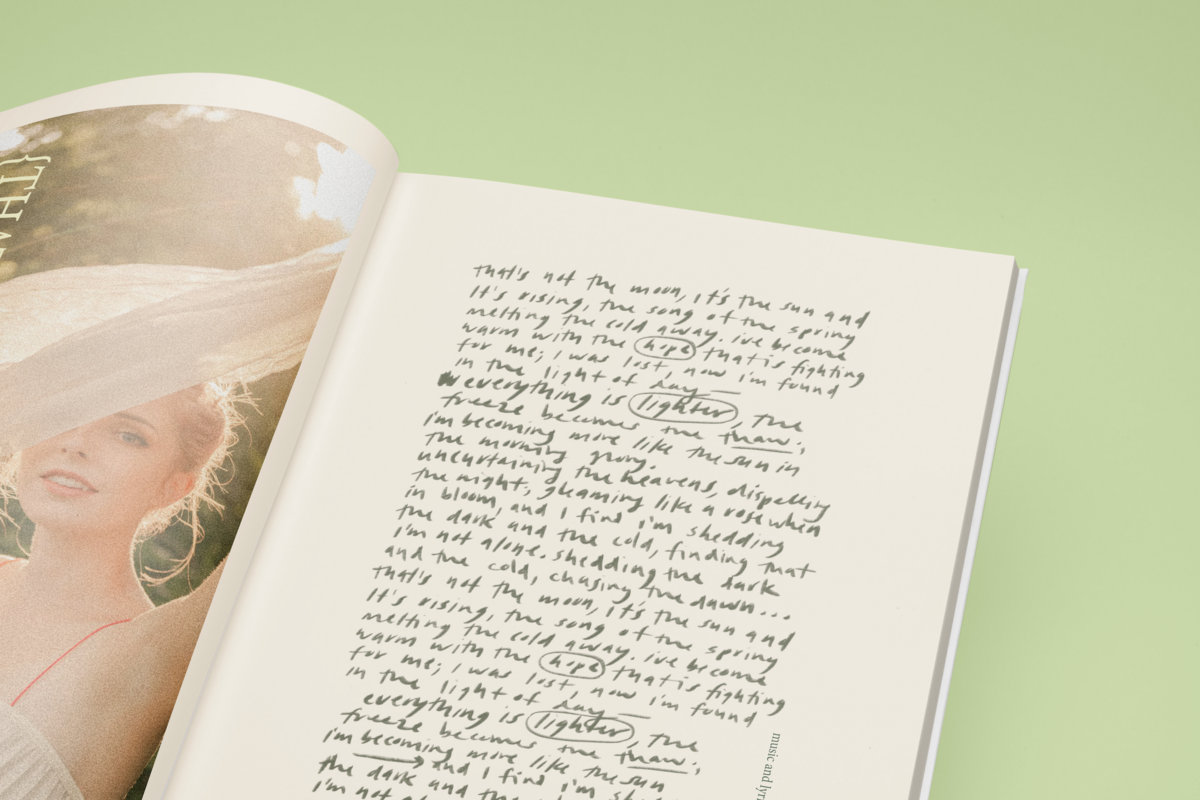 {THA
that's not the moon, it's the sun and
It's rising, the song of the spring
melting the cold away. i've become
warm with the hope that is fighting
for me; I was lost, now i'm found
in the light of day —
everything is lighter, the
freeze becomes the thaw;
i'm becoming more like the sun in
the morning glory.
uncurtaining the heavens, dispelling
the night; gleaming like a rose when
in bloom, and I find i'm shedding
the dark and the cold, finding that
i'm not alone. shedding the dark
and the cold, chasing the dawn...
that's not the moon, it's the sun and
It's rising, the song of the spring
melting the cold away. i've become
warm with the hope that is fighting
for me; I was lost, now i'm found
in the light of day —
everything is lighter, the
freeze becomes the thaw;
i'm becoming more like the sun
and I find i'm
the dark and the
i'm not
music and